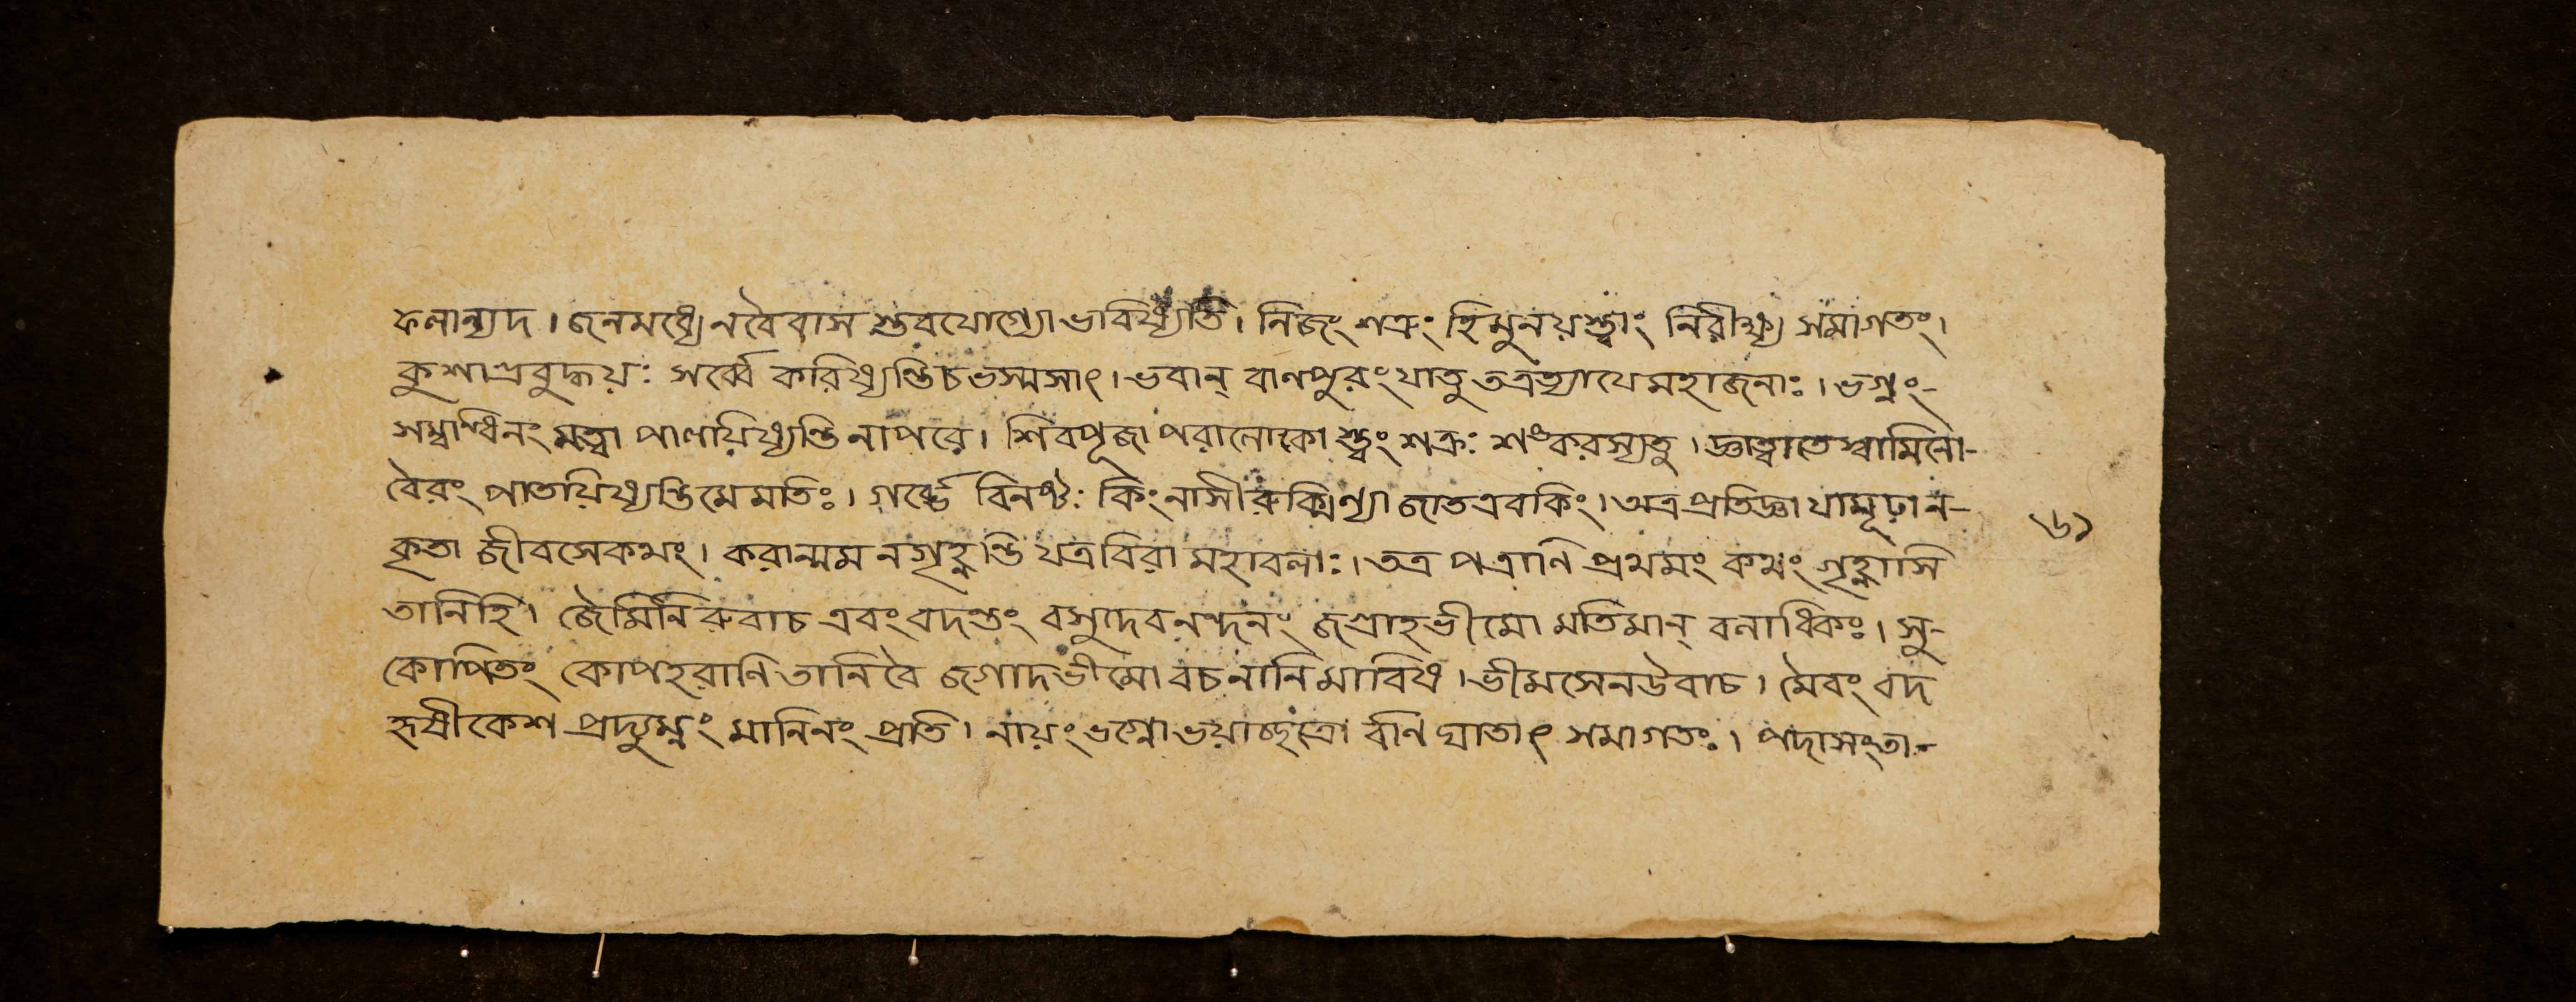 ফলান্যদ। জনমধ্যেনবৈবাস শুবযোগ্যোভবিষ্যতি। নিজং শত্রুং হিমুনয়স্ত্বাং নিরীক্ষ্য সমাগতং।
কুশাগ্রবুদ্ধয়ঃ সর্ব্বে করিষ্যন্তিচভস্মসাৎ। ভবান্ বাণপুরংযাতু তত্রত্যাযেমহাজনাঃ। ভগ্নং-
সম্বন্ধিনং মত্বা পালয়িষ্যন্তি নাপরে। শিবপূজা পরালোকো স্ত্বং শত্রুঃ শঙ্করস্যতু। জ্ঞাত্বাতেস্বামিনো-
বৈরং পাতয়িষ্যন্তিমেমতিঃ। গর্ব্ভে বিনষ্টঃ কিংনাসীরুক্মিণ্যা জাতএবকিং। অত্রপ্রতিজ্ঞা যামূঢ়ান-
কৃতা জীবসেকথং। করান্মম নগৃহ্ণন্তি যত্রবিরা মহাবলাঃ। তত্র পত্রাণি প্রথমং কথং গৃহ্ণাসি
তানিহি। জৈমিনিরুবাচ এবংবদন্তং বসুদেবনন্দনং জগ্রাহভীমো মতিমান্ বলাধিকঃ। সু-
কোপিতং কোপহরাণি তানিবৈ জগাদভীমো বচনানিমাবিষ। ভীমসেনউবাচ। মৈবং বদ
হৃষীকেশ প্রদ্যুম্নং মানিনং প্রতি। নায়ংভগ্নোভয়াচ্ছত্রো র্বাণ ঘাতাৎ সমাগতঃ। পদাসংতা-
৬১